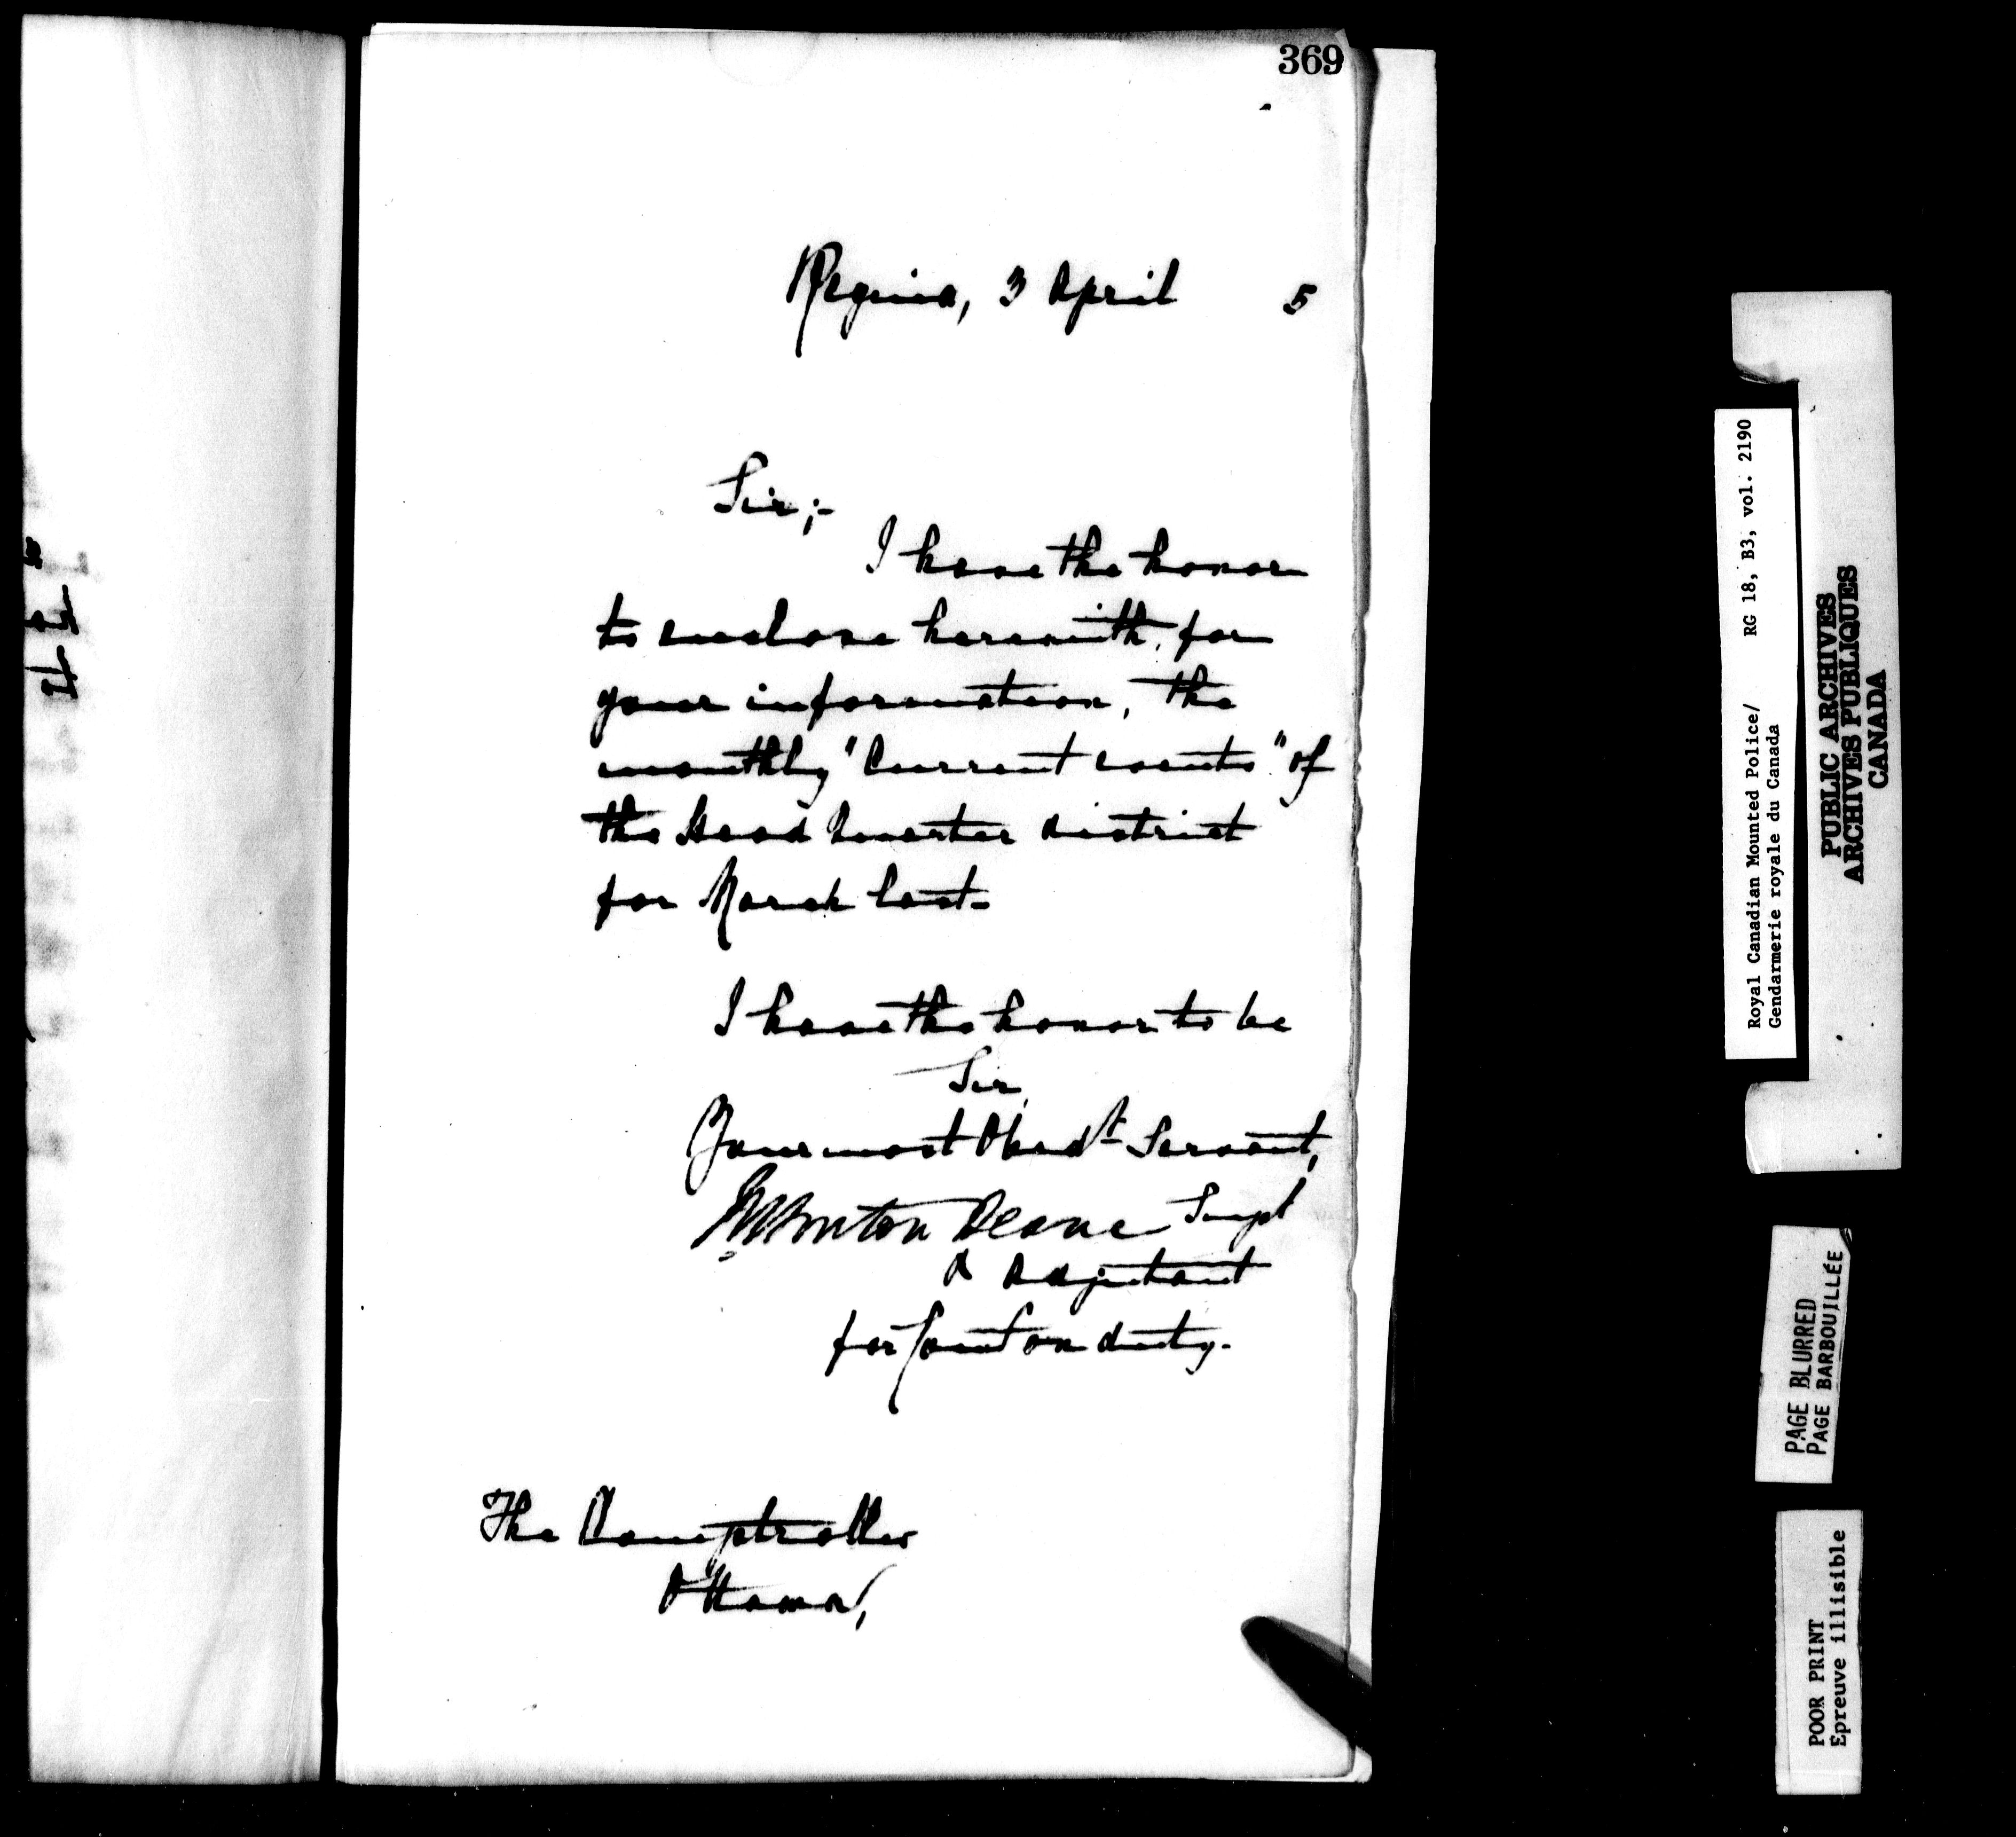 369
Regina, 3 April 5
Sir;-
I have the honor
to enclose herewith, for
your information, the
monthly "Current events" of
the Head Quarter district
for March last-
I have the honor to be
Sir,
Your most Obedt Servant,
Burton Deane Supt
& Adjutant
for Comr on duty.
The Comptroller
Ottawa,
Royal Canadian Mounted Police/ RG 18, B3, vol. 2190
Gendarmerie royale du Canada
PUBLIC ARCHIVES
ARCHIVES PUBLIQUES
CANADA
PAGE BLURRED
PAGE BARBOUILLÉE
POOR PRINT
Epreuve illisible